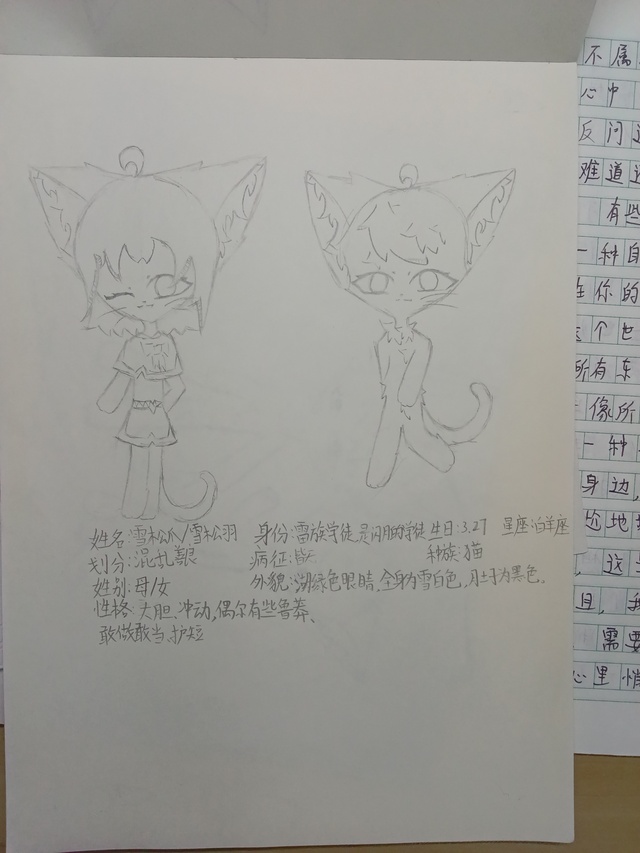 姓名:雪松爪/雪松羽 身份:雷族学徒,是闪爪的学徒 生日:3.27 星座:白羊座
划分:混乱善良 病征:暂无 种族:猫
姓别:母/女 外貌:湖绿色眼睛,全身为雪白色,爪子为黑色。
性格:大胆、冲动,偶尔有些鲁莽、
敢做敢当、护短
不属
心中
反问
难道
有些
一种自
你的
个也
所有东
像所
一种
身边,
地
这
且,
需要
心里悄